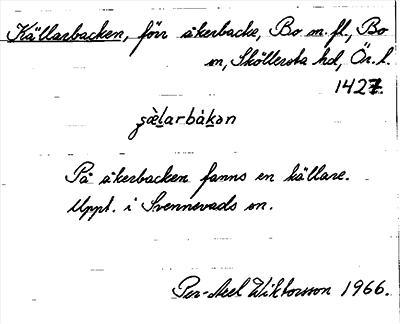 Källarbacken, förr åkerbacke, Bo m.fl., Bo
sn, Sköllersta hd, Ör. l.
1427.
På åkerbacken fanns en källare.
Uppt. i Svennevads sn.
Per-Axel Wiktorsson 1966.